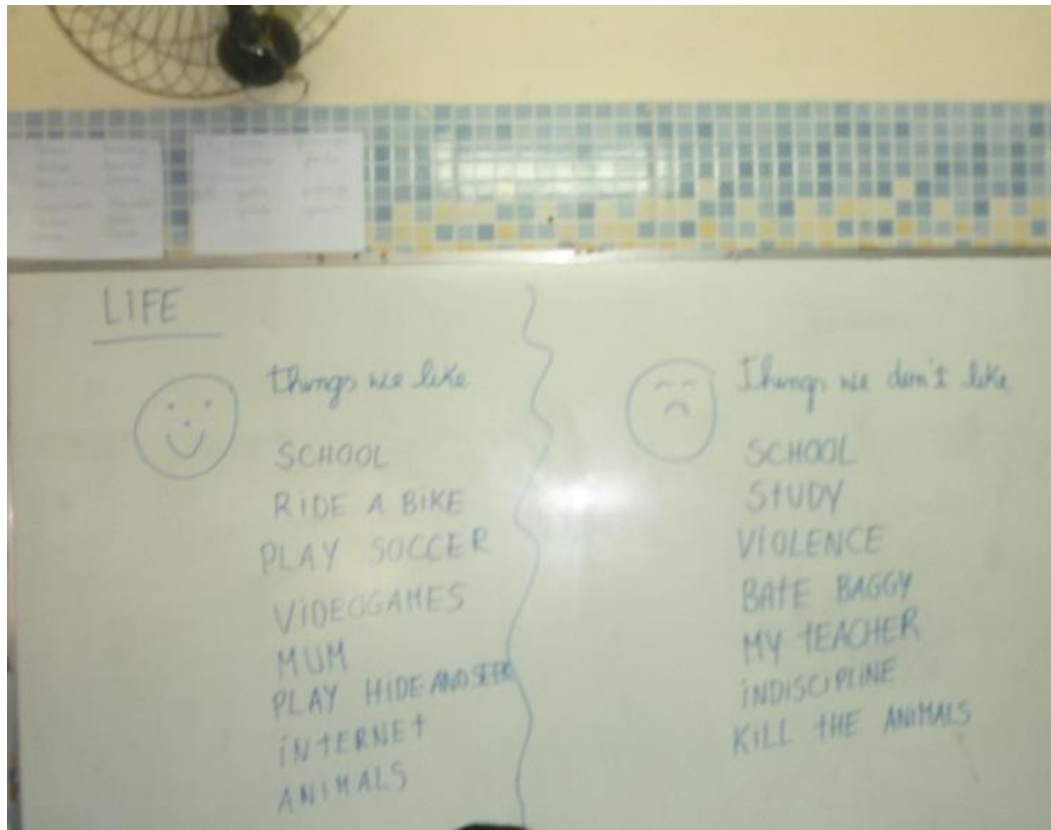 LIFE
things we like
SCHOOL
RIDE A BIKE
PLAY SOCCER
VIDEOGAMES
MUM
PLAY HIDE AND SEEK
INTERNET
ANIMALS
Things we don't like
SCHOOL
STUDY
VIOLENCE
BATE BAGGY
MY TEACHER
INDISCIPLINE
KILL THE ANIMALS